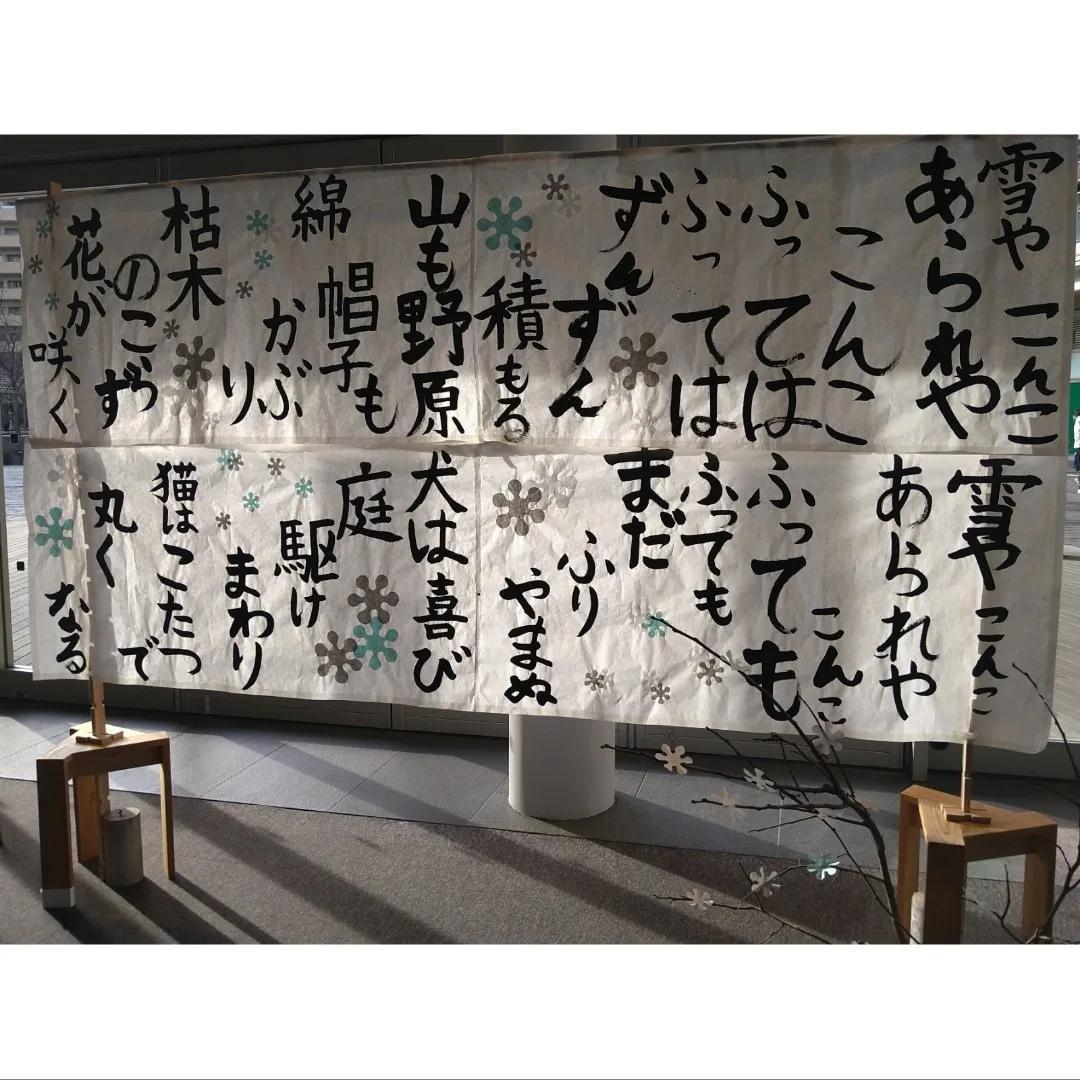 雪や こんこ
あられや
こんこ
ふっては
ふっては
ずん
ずん
積もる
山も野原
も
綿帽子
かぶ
り
枯木
のこらず
花が
咲く
雪や こんこ
あられや
こんこ
ふっても
ふっても
まだ
ふり
やまぬ
犬は喜び
庭
駆け
まわり
猫はこたつ
で
丸く
なる